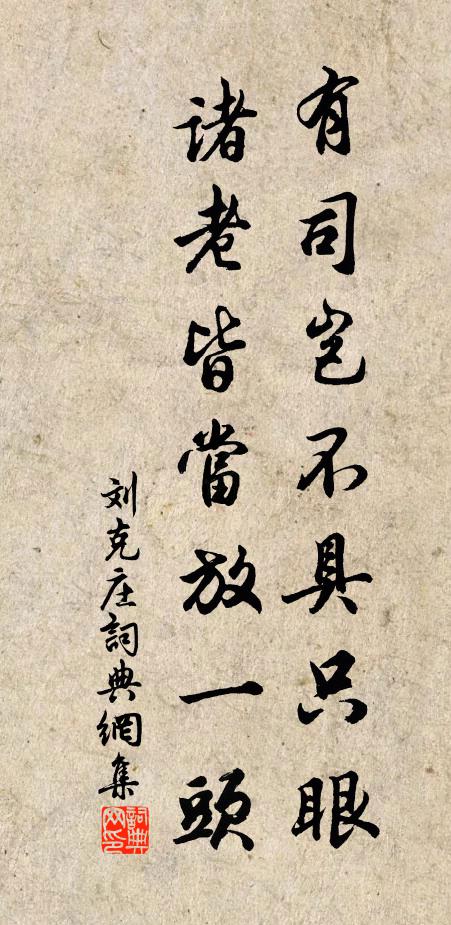 有司岂不具只眼
諸老皆當放一頭
刘克庄詞典網集
詞典
网印